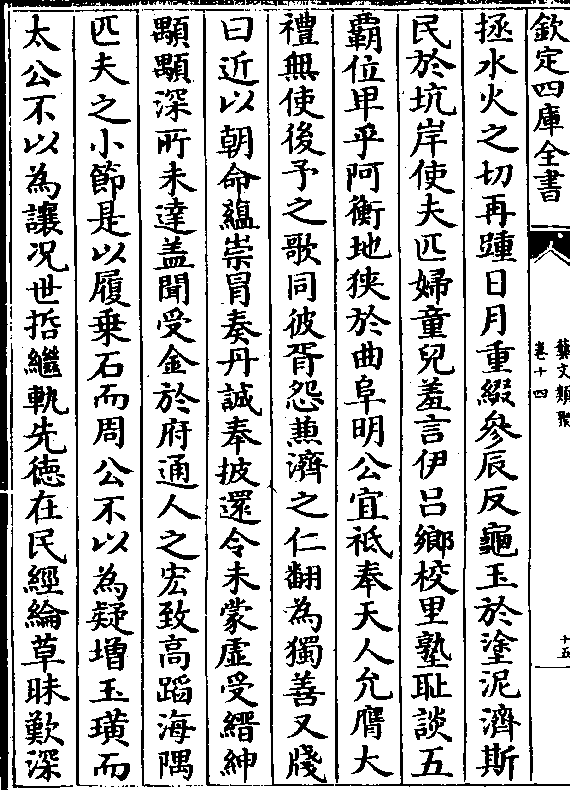 欽定四庫全書
藝文類聚
卷十四
十五
拯水火之切再躔日月重綴參辰反龜玉於塗泥濟斯
民於坑岸使夫匹婦童兒羞言伊吕鄉校里塾恥談五
霸位卑乎阿衡地狹於曲阜明公宜祗奉天人允膺大
禮無使後予之歌同彼胥怨兼濟之仁翻為獨善又牋
曰近以朝命蘊崇冒奏丹誠奉披還令未蒙虛受縉紳
顒顒深所未達盖聞受金於府通人之宏致高蹈海隅
匹夫之小節是以履乗石而周公不以為疑増玉璜而
太公不以為讓况世哲繼軌先徳在民經綸草昧歎深